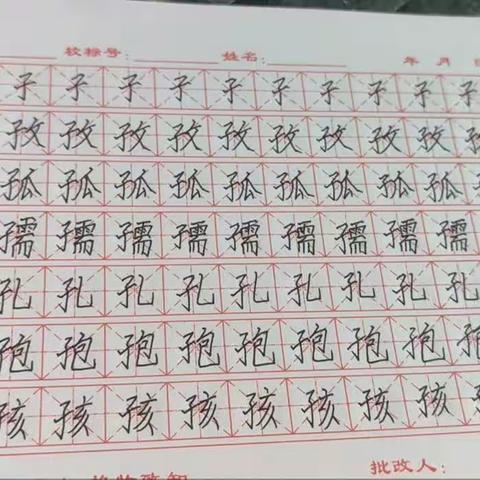 较标号: 姓名: 年 月
子 子 子 子 子 子 子 子 子 子
孜 孜 孜 孜 孜 孜 孜 孜 孜
孤 孤 孤 孤 孤 孤 孤 孤 孤
孺 孺 孺 孺 孺 孺 孺 孺 孺
孔 孔 孔 孔 孔 孔 孔 孔 孔
孢 孢 孢 孢 孢 孢 孢 孢 孢
孩 孩 孩 孩 孩 孩 孩 孩
格物致知 批改人: